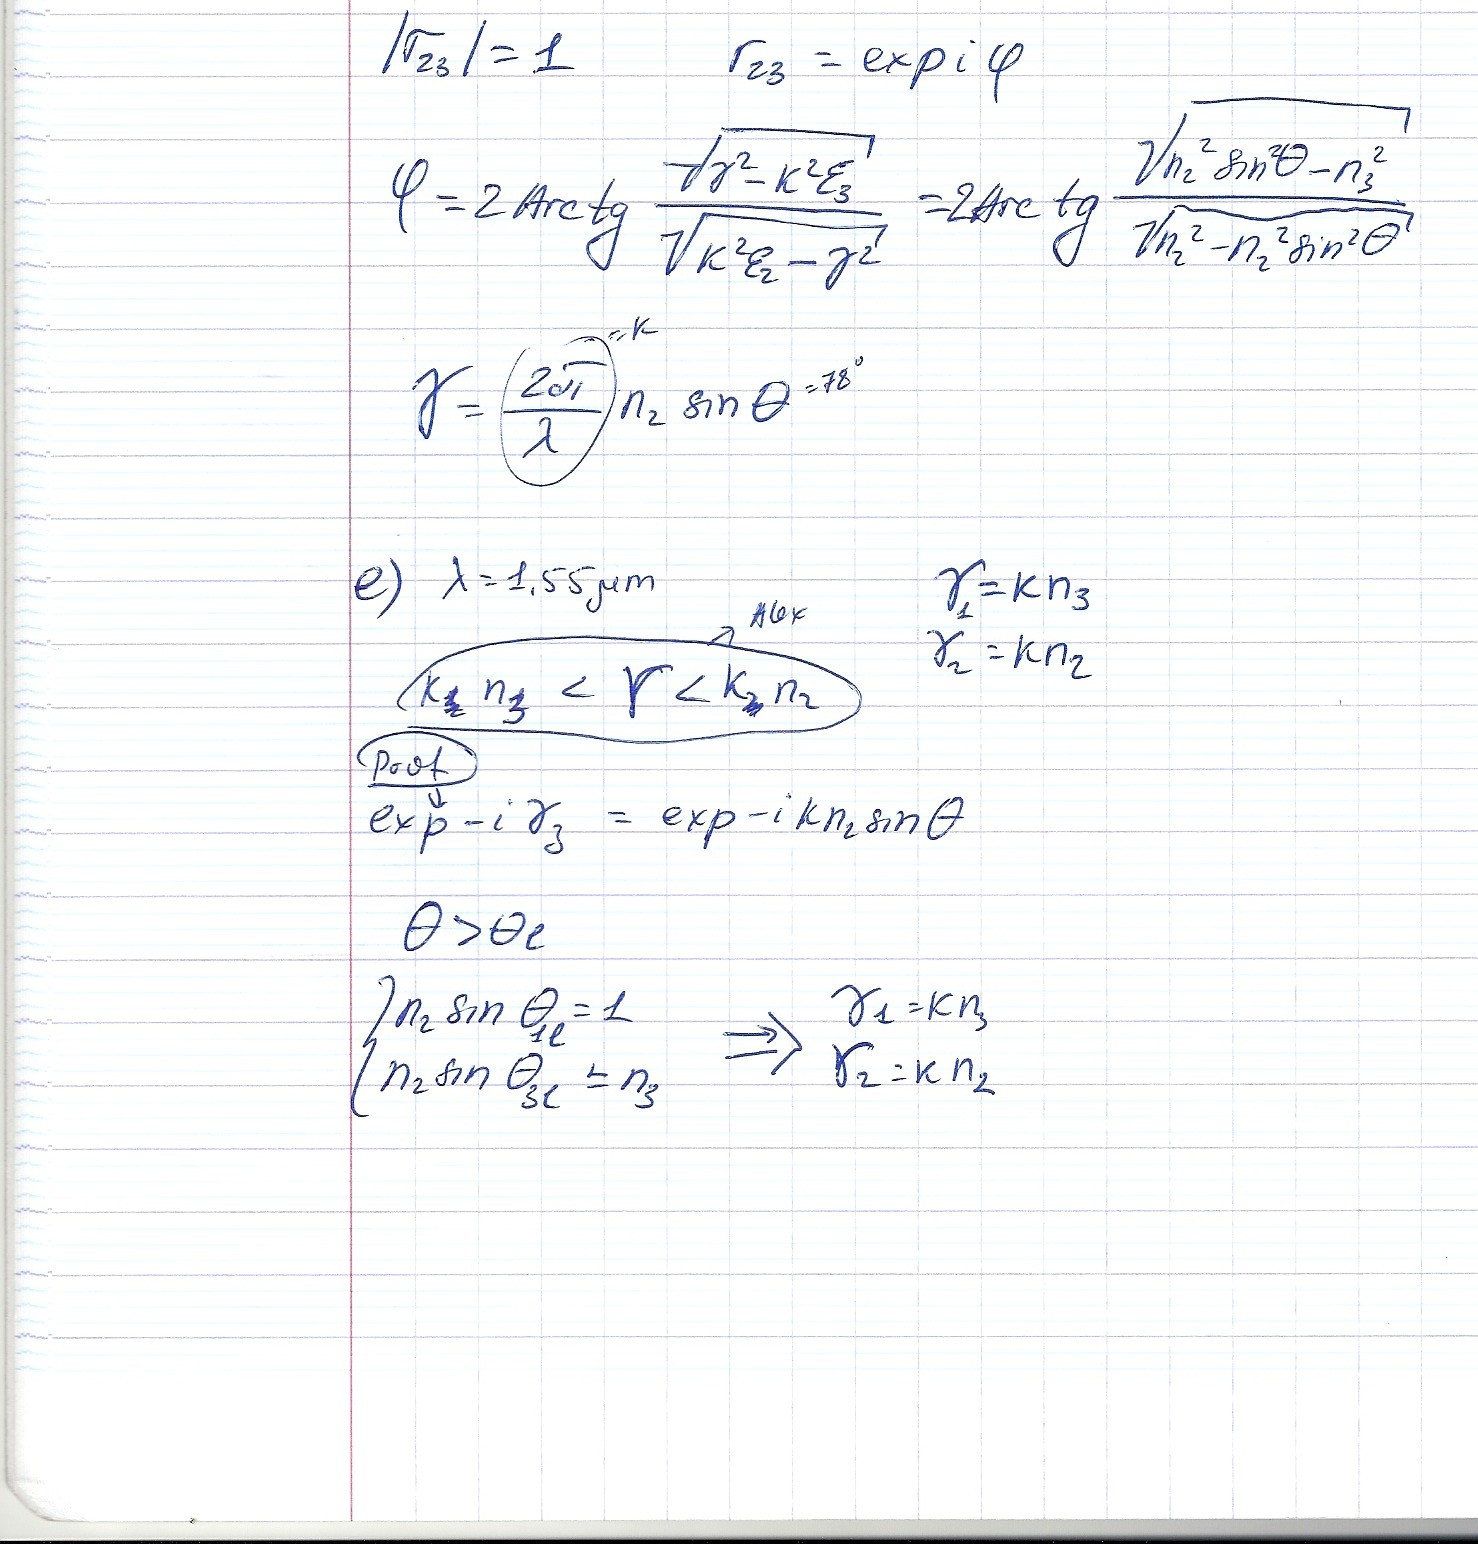 |r₂₃| = 1 r₂₃ = exp i φ
φ = 2 Arctg √(γ² - k²ε₃) / √(k²ε₂ - γ²) = 2 Arctg √(n₂² sin²θ - n₃²) / √(n₂² - n₂² sin²θ)
γ = (2π/λ) = k n₂ sin θ = 78°
e) λ = 1,55 μm γ₁ = k n₃
γ₂ = k n₂
k n₃ < γ < k n₂
Proof
exp - i γ₃ = exp - i k n₂ sin θ
θ > θℓ
{ n₂ sin θ₁ℓ = 1 ⇒ γ₁ = k n₃
n₂ sin θ₃ℓ = n₃ γ₂ = k n₂